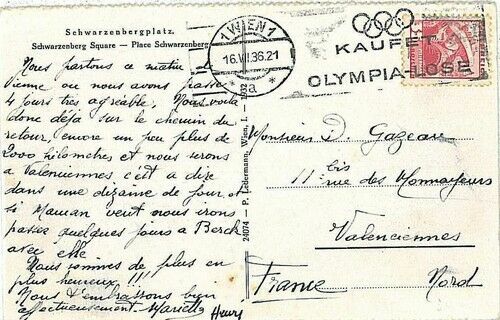 Schwarzenbergplatz.
Schwarzenberg Square — Place Schwarzenberg
1 WIEN 1
16.VII.36.21
* a *
KAUFET
OLYMPIA-LOSE
Nous partons ce matin de
Vienne ou nous avons passé
4 jours très agréable, Nous voilà
donc déjà sur le chemin du
retour, encore un peu plus de
2000 kilomètres et nous serons
a Valenciennes c'est a dire
dans une dizaine de jour, et
si Maman veut nous irons
passer quelques jours a Berck
avec elle
Nous sommes de plus en
plus heureux !!!
Nous t'embrassons bien
affectueusement. Marcelle
Henri
24074 — P. Ledermann, Wien, I. — 1932
Monsieur D. Gazeau
11 bis rue des Monnayeurs
Valenciennes
France Nord